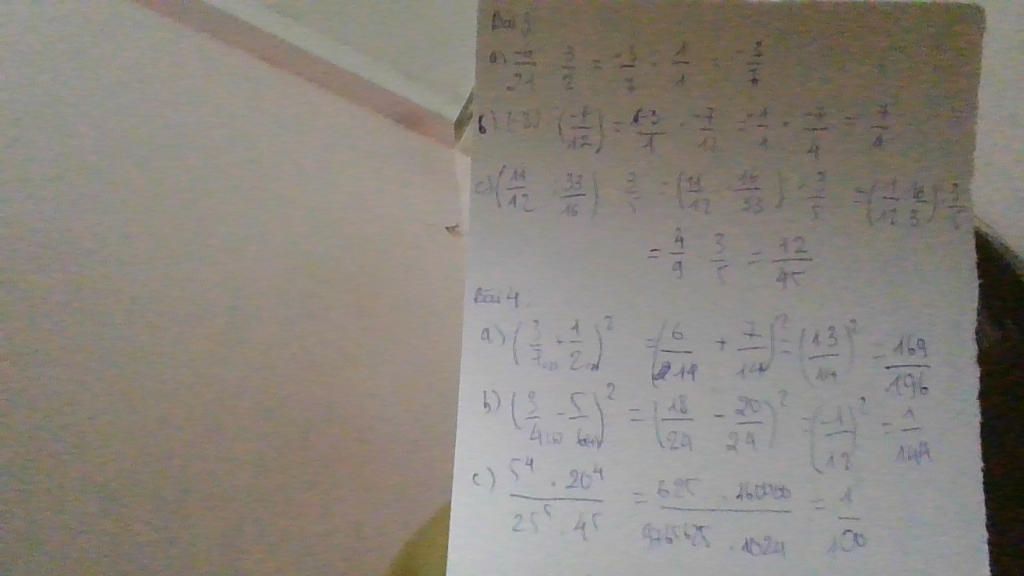 Bài 3
a) \frac{-2}{21} \frac{3}{2} = \frac{-3}{} \frac{1}{1}
b) (-3) (\frac{-7}{12}) = \frac{-3}{1} \cdot \frac{-7}{12} = \frac{-1}{1} \cdot \frac{-7}{4} = \frac{7}{4}
c) (\frac{11}{12} : \frac{33}{16}) \frac{3}{5} = (\frac{11}{12} \cdot \frac{16}{33}) \cdot \frac{3}{5} = (\frac{1}{12} \cdot \frac{16}{3}) \cdot \frac{3}{5}
= \frac{4}{9} \frac{3}{5} = \frac{12}{45}
Bài 4.
a) (\frac{3}{7} + \frac{1}{2})^2 = (\frac{6}{14} + \frac{7}{14})^2 = (\frac{13}{14})^2 = \frac{169}{196}
b) (\frac{3}{4} - \frac{5}{6})^2 = (\frac{18}{24} - \frac{20}{24})^2 = (\frac{1}{12})^2 = \frac{1}{144}
c) \frac{5^4 \cdot 20^4}{25^5 \cdot 4^5} = \frac{625 \cdot 160000}{9765625 \cdot 1024} = \frac{1}{100}